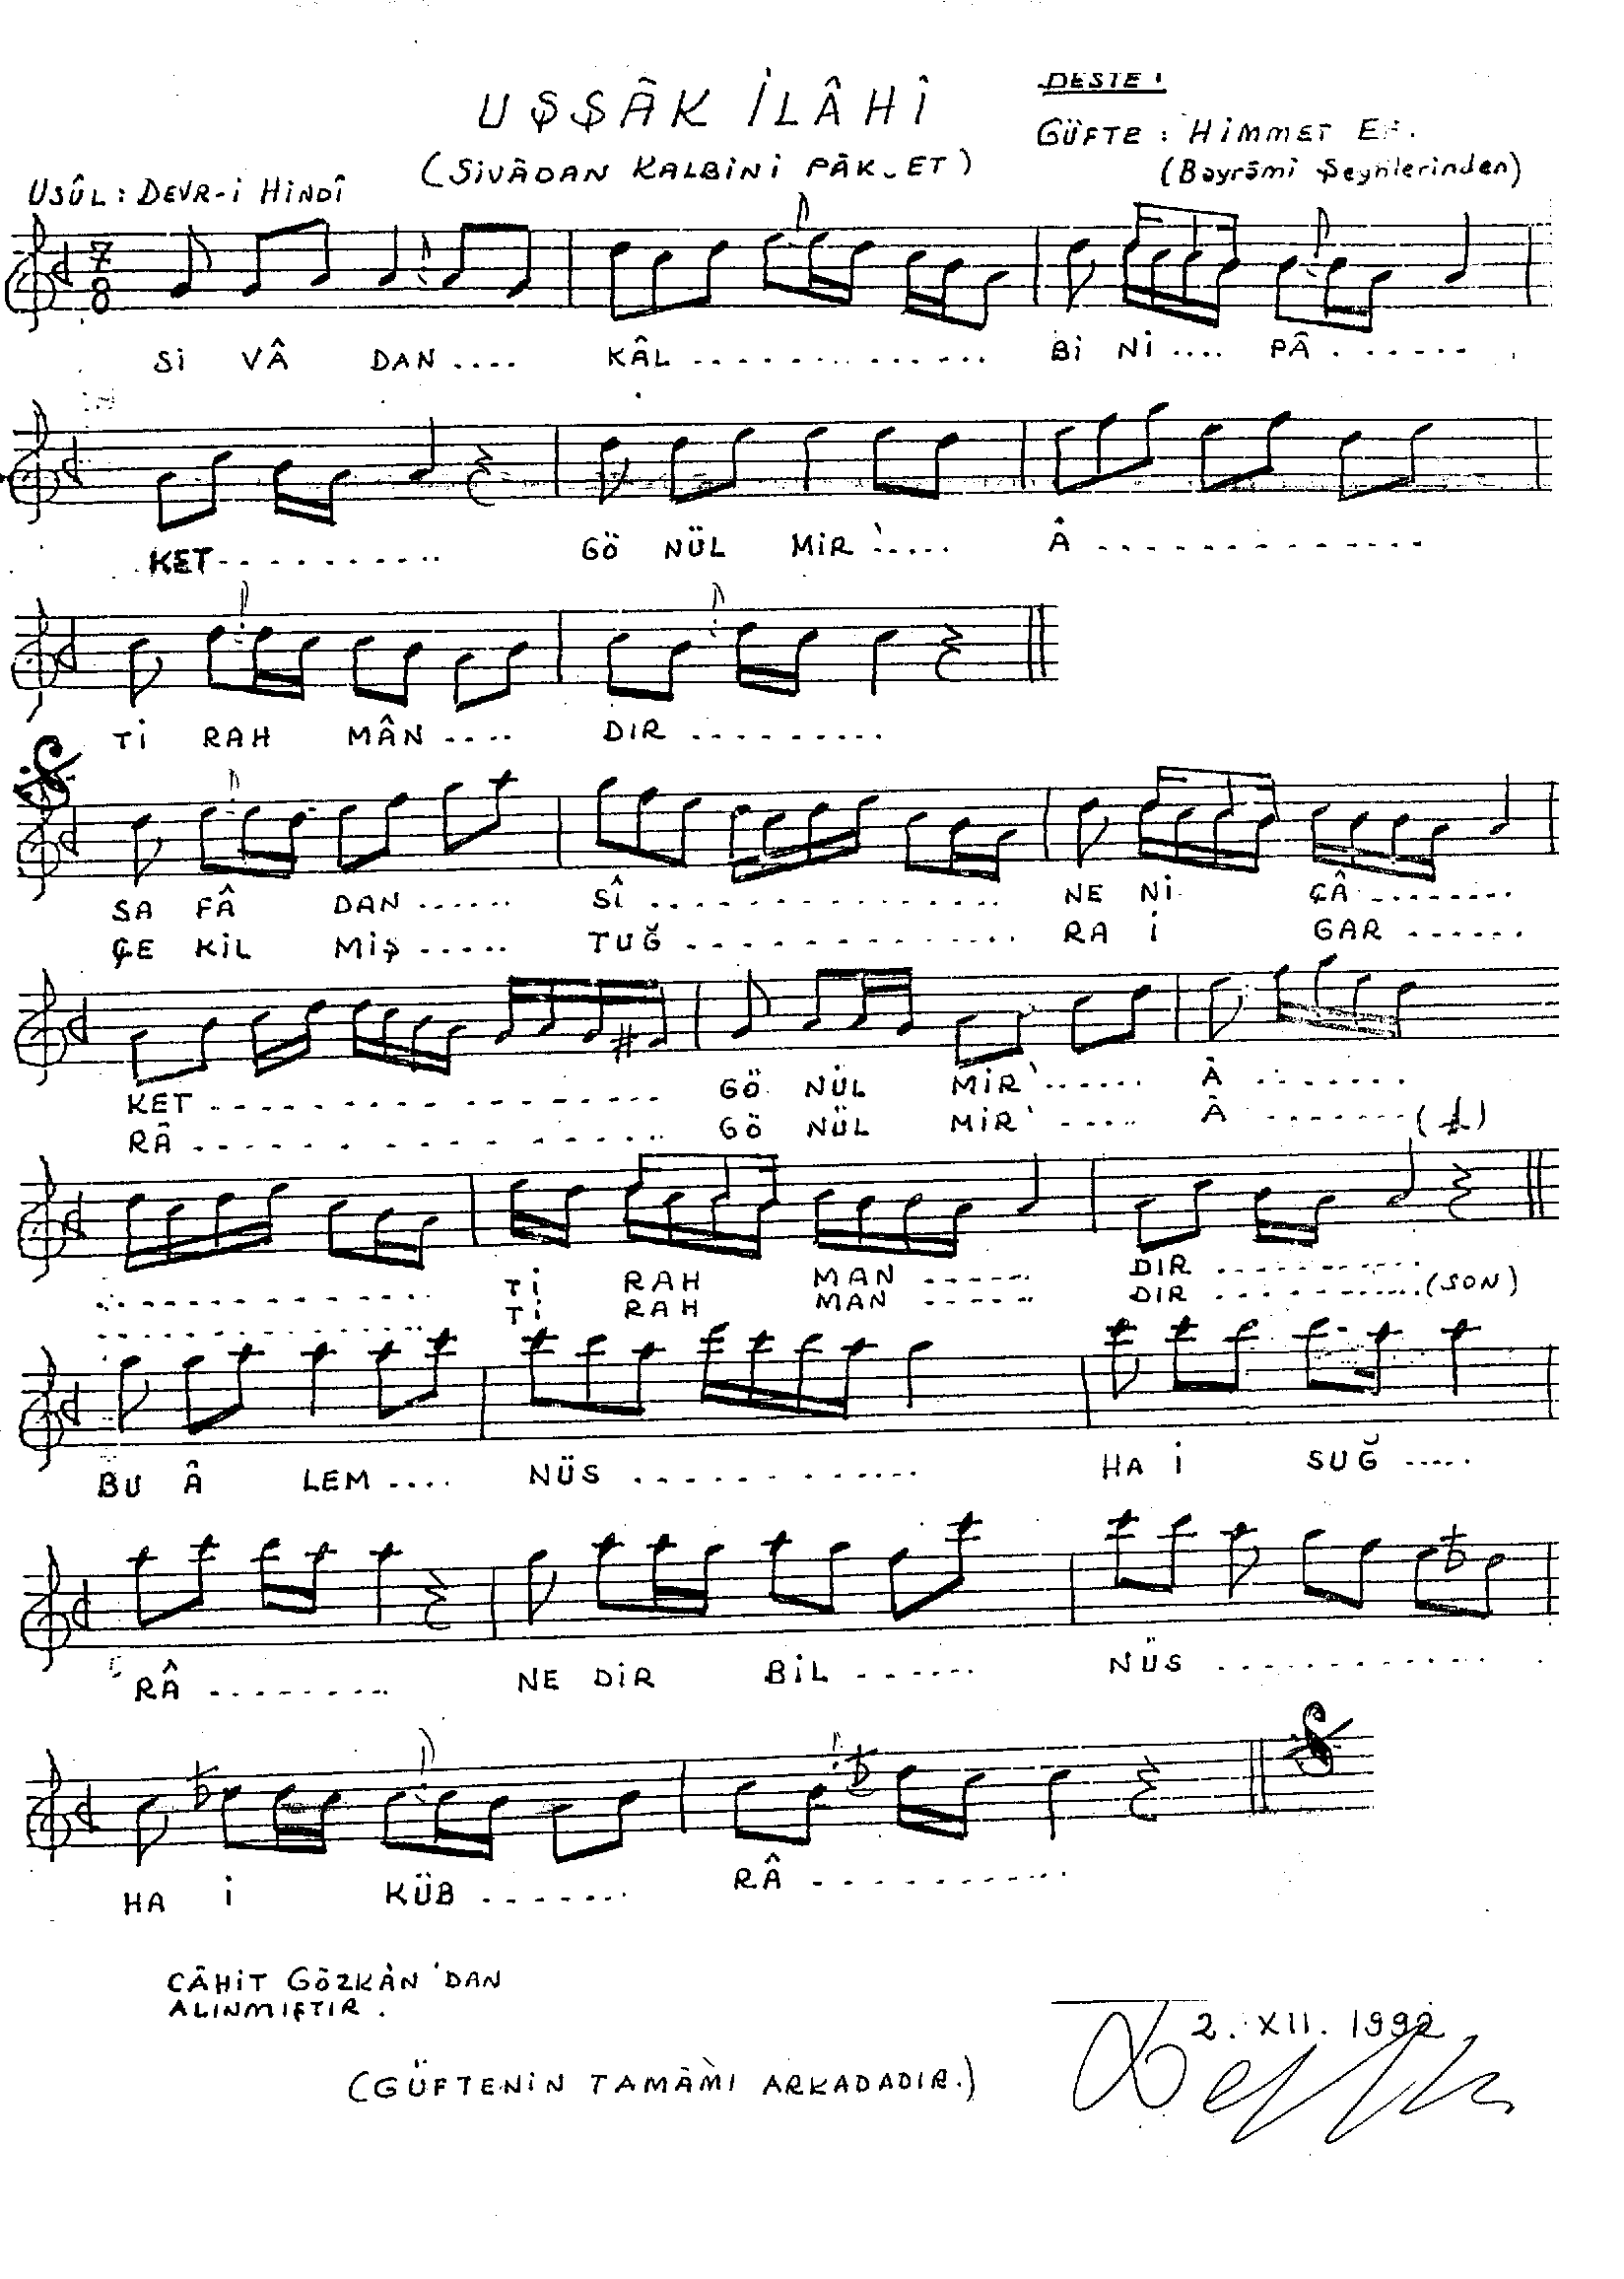 UŞŞÂK İLÂHÎ
DESTE 1
GÜFTE : HİMMET EF.
(SİVÂDAN KALBİNİ PÂK-ET)
(Bayrâmî Şeyhlerinden)
USÛL : DEVR-İ HİNDÎ
7
8
Sİ VÂ DAN .... KÂL .............. Bİ Nİ .... PÂ .......
KET .......... GÖ NÜL MİR' ..... Â ..............
Tİ RAH MÂN .... DIR .........
SA FÂ DAN ...... SÎ ................ NE Nİ ÇÂ ........
ÇE KİL MİŞ ..... TUĞ ............... RA İ GAR ......
KET ................. GÖ NÜL MİR' ...... Â .......
RÂ ................. GÖ NÜL MİR' ..... Â .......
............. Tİ RAH MAN ...... DIR .........
............. Tİ RAH MAN ...... DIR ......... (SON)
BU Â LEM .... NÜS ........... HA İ SUĞ .....
RÂ ........ NE DİR BİL ...... NÜS ............
HA İ KÜB ...... RÂ ...........
CÂHİT GÖZKÂN'DAN
ALINMIŞTIR .
2. XII. 1992
(GÜFTENİN TAMÂMI ARKADADIR.)